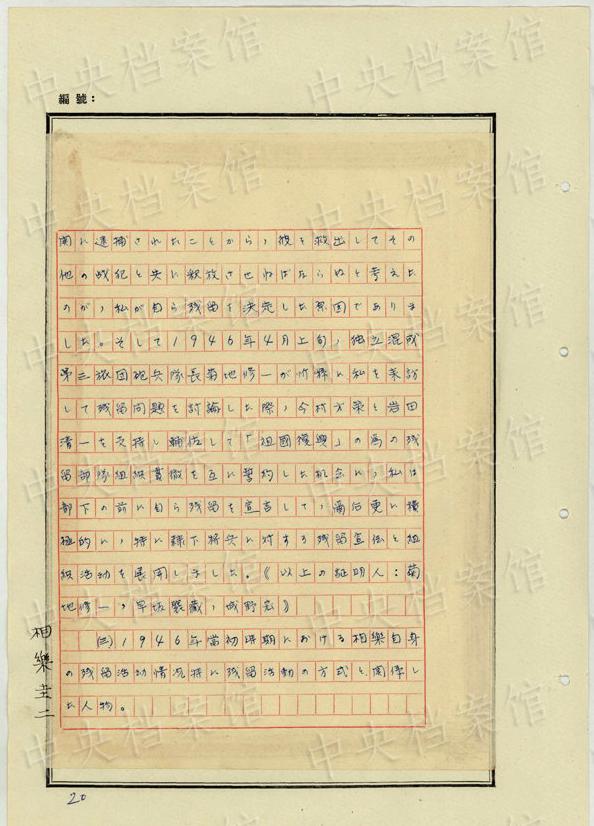 編號：
関に逮捕されたことから，彼を救出してその
他の战犯と共に釈放させねばならぬと考えた
のが，私が自ら残留を決定した原因でありま
した。そして1946年4月上旬，独立混成
第三旅团砲兵隊長菊地修一が忻県に私を来訪
して残留问题を討論した際，今村方策と岩田
清一を支持し輔佐して「祖國復興」の為の残
留部隊組織貫徹を互いに誓約した机会に，私は
部下の前に自ら残留を宣言して，爾后更に積
極的に，特に隷下将兵に対する残留宣伝と組
織活动を展開しました。《以上の証明人：菊
地修一，早坂 藏，城野宏》
㈢1946年當初時期における相樂自身
の残留活动情况特に残留活动の方式と関係し
た人物。
相樂圭二
20
中央档案馆